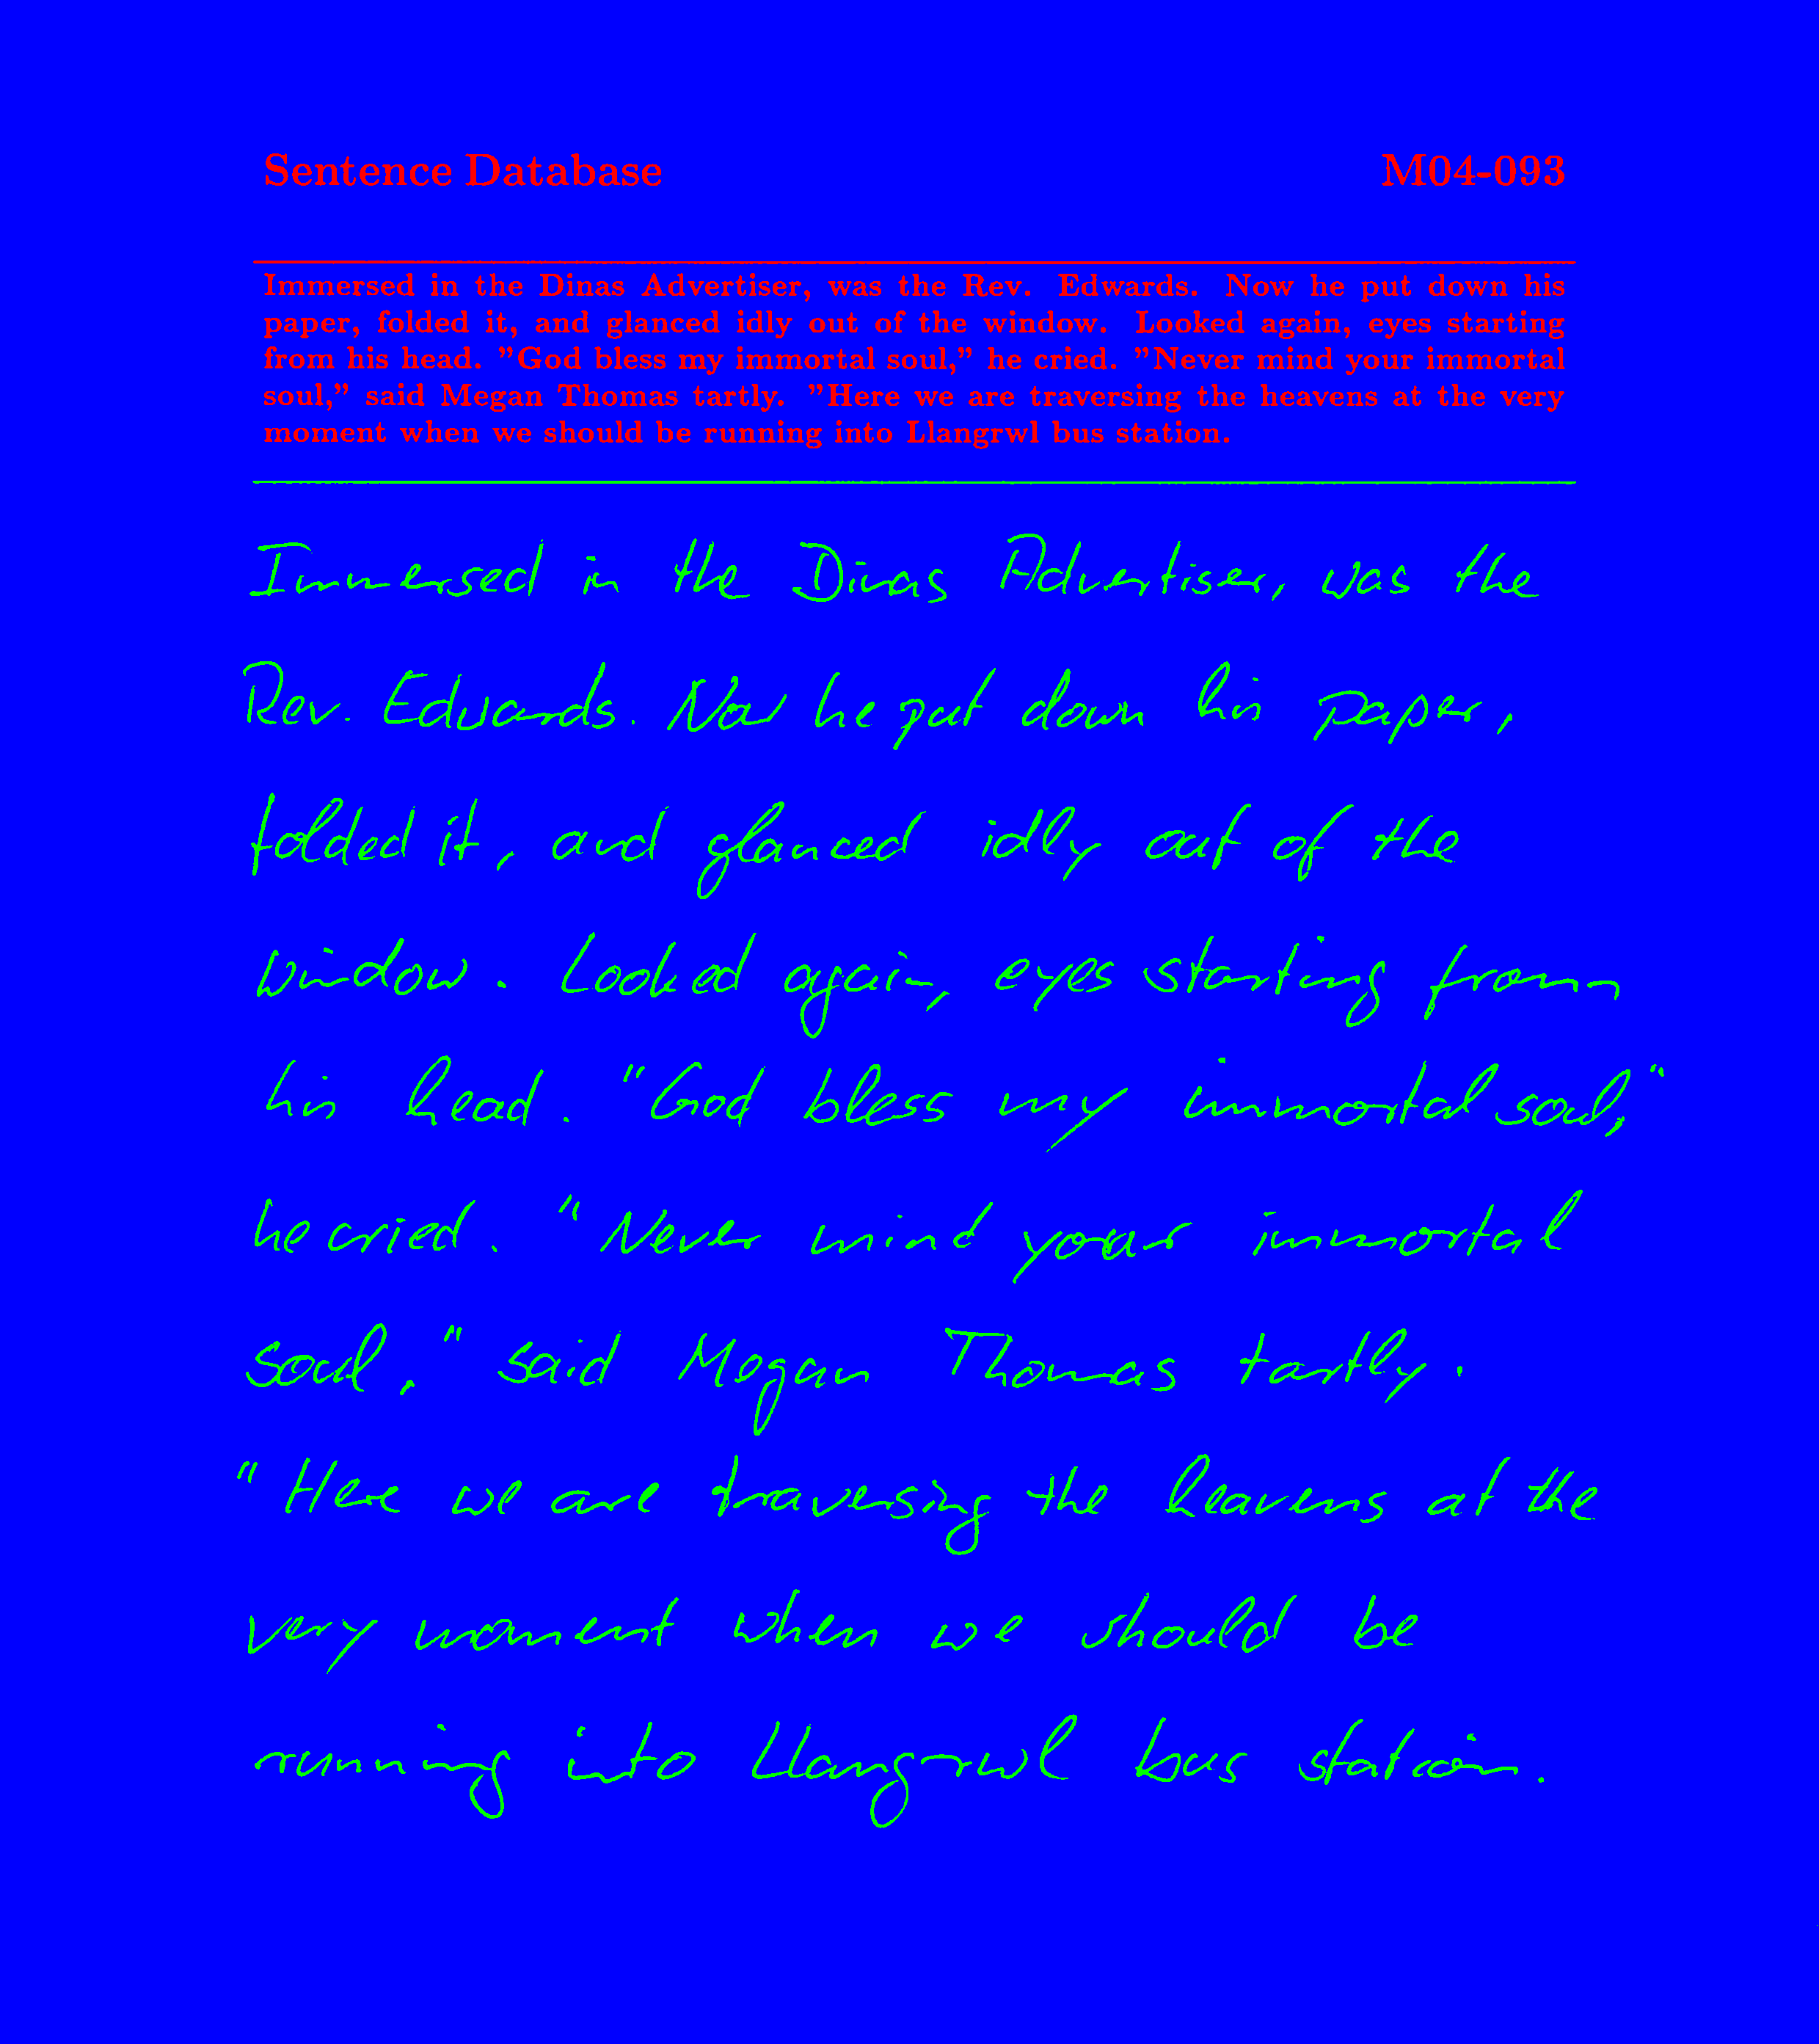 Sentence Database M04-093
Immersed in the Dinas Advertiser, was the Rev. Edwards. Now he put down his
paper, folded it, and glanced idly out of the window. Looked again, eyes starting
from his head. "God bless my immortal soul," he cried. "Never mind your immortal
soul," said Megan Thomas tartly. "Here we are traversing the heavens at the very
moment when we should be running into Llangrwl bus station.
Immersed in the Dinas Advertiser, was the
Rev. Edwards. Now he put down his paper,
folded it, and glanced idly out of the
window. Looked again, eyes starting from
his head. "God bless my immortal soul,"
he cried. "Never mind your immortal
soul," said Megan Thomas tartly.
"Here we are traversing the heavens at the
very moment when we should be
running into Llangrwl bus station.